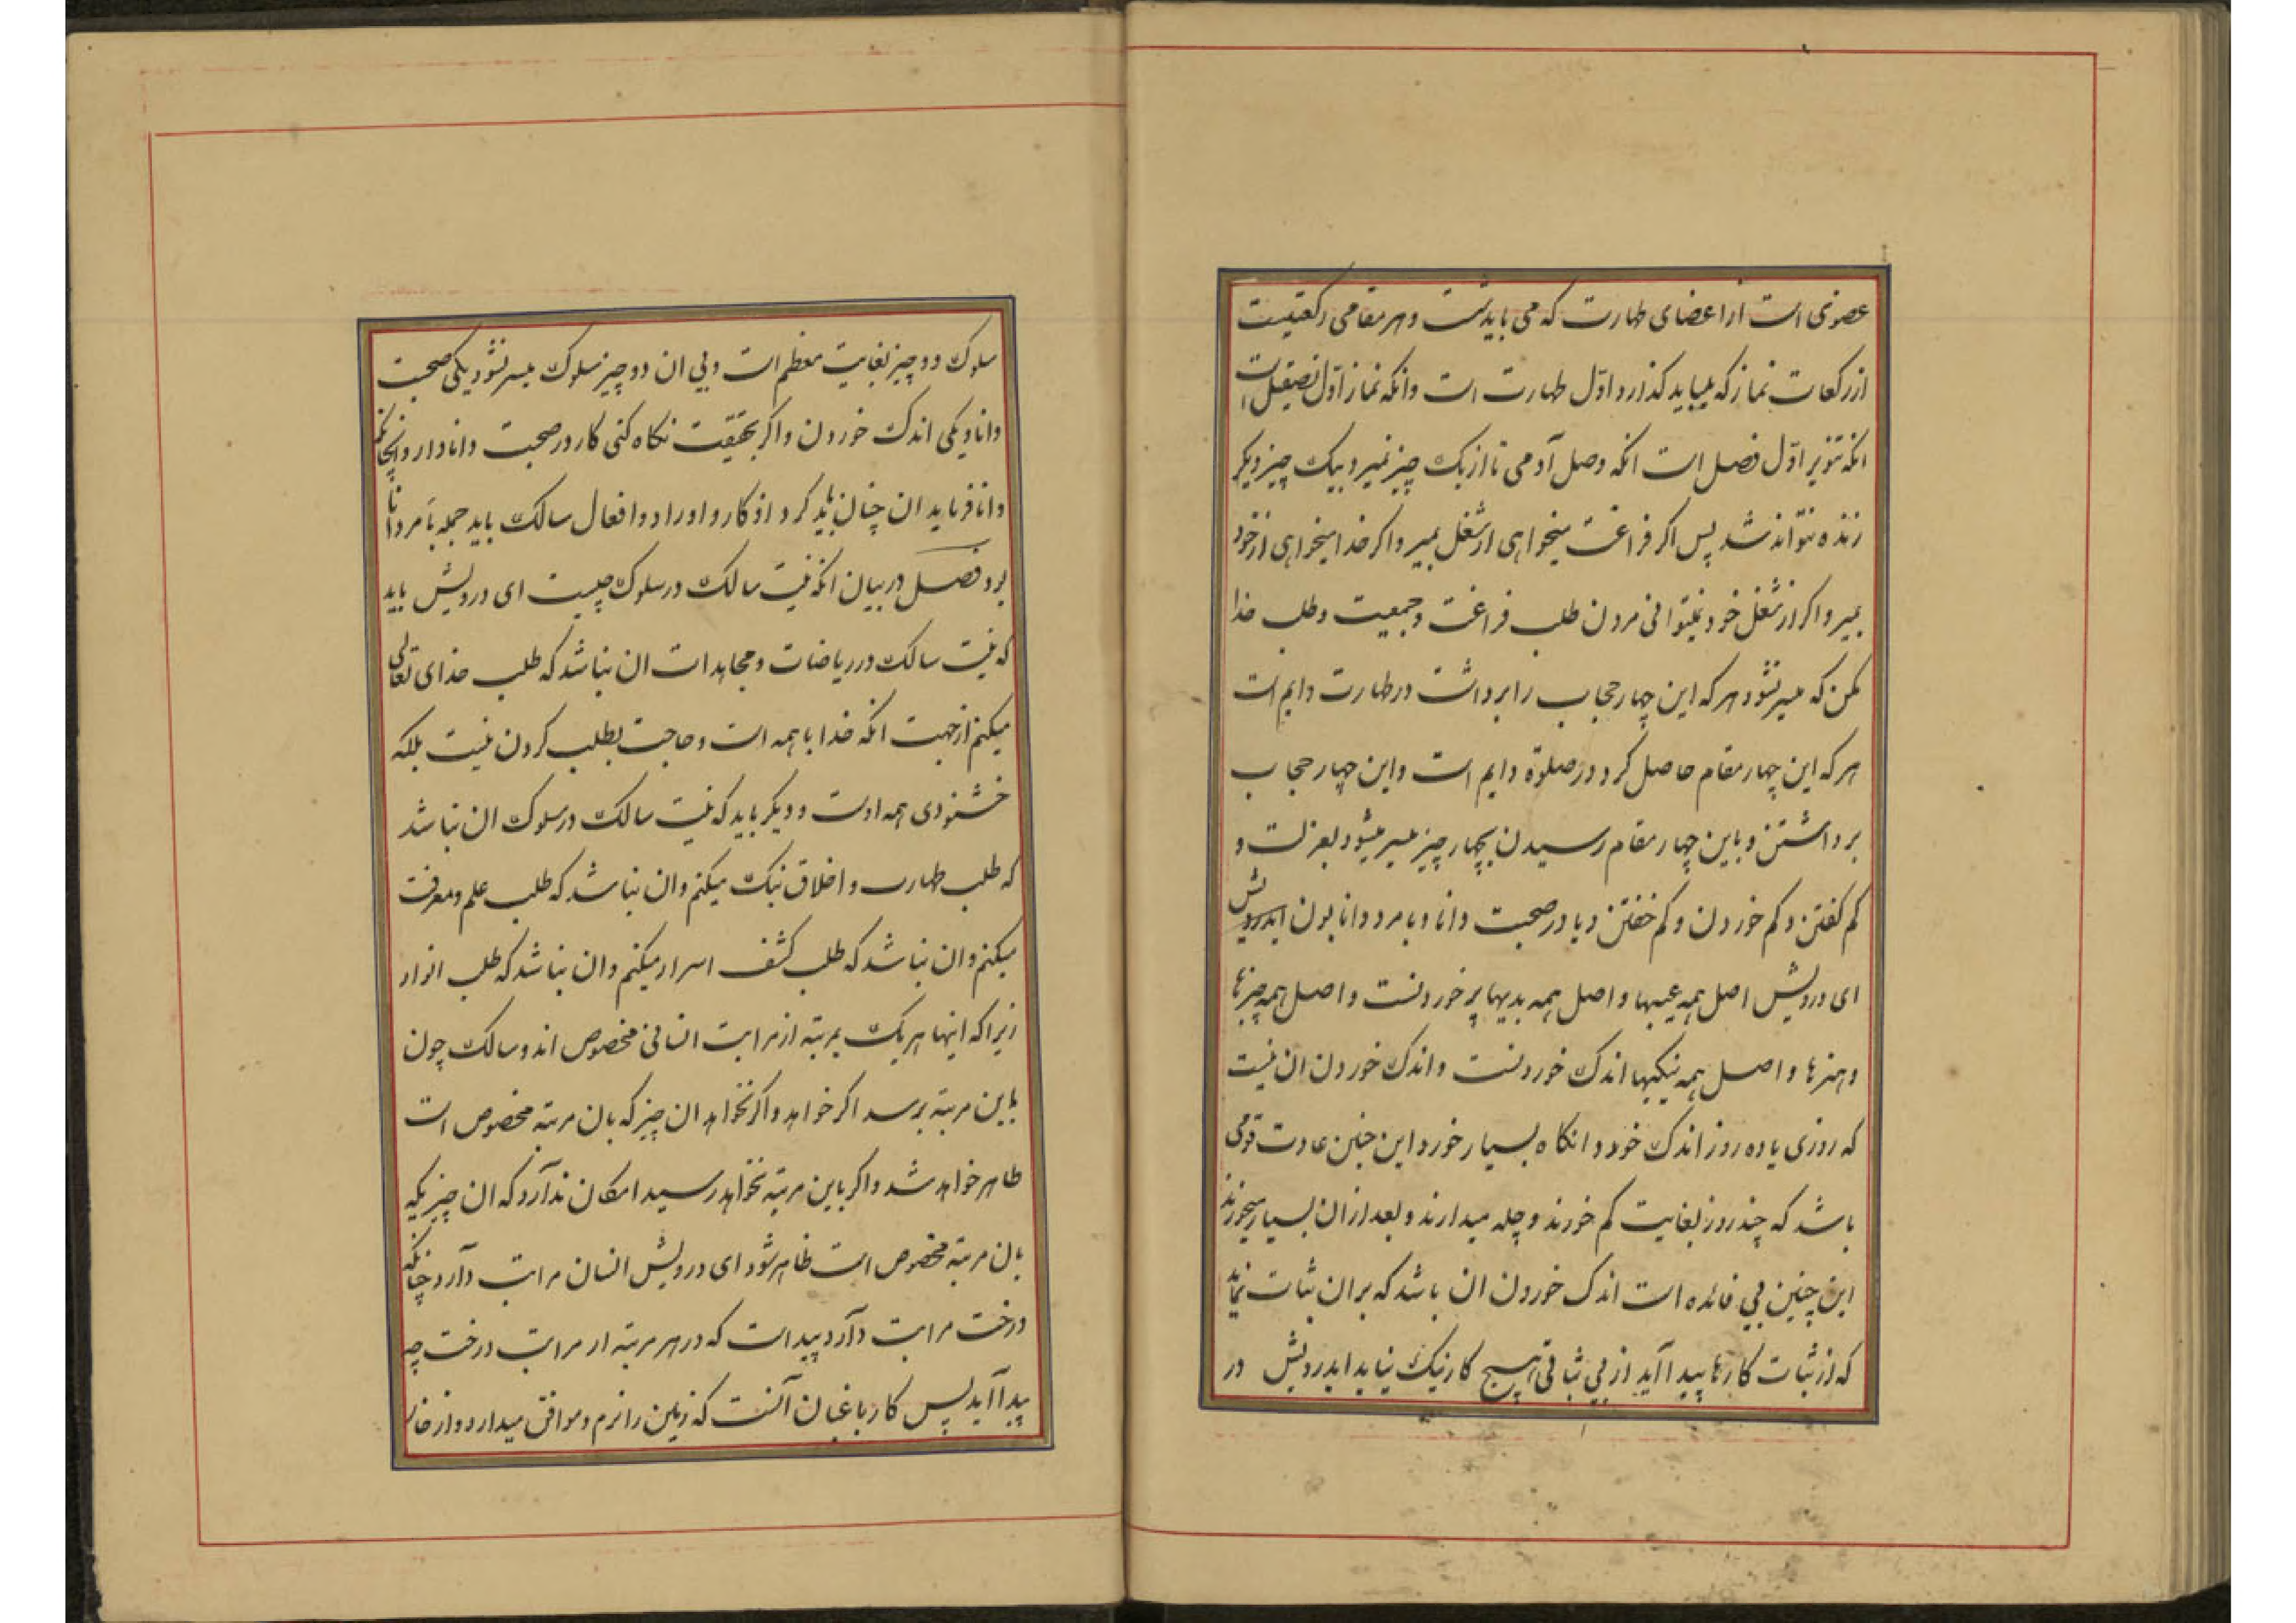 عضوی است از اعضای طهارت که می باید شست و هر مقامی رکعتیست
از رکعات نماز که میباید کذارد و اوّل طهارت است وانکه نماز اوّل تصقیل است
انکه تنویر اوّل فصل است انکه وصل آدمی تا از یک چیز نمیرد بیک چیز دیکر
زنده نتواند شد پس اکر فراغت میخواهی از شغل بمیر و اکر خدا میخواهی از خود
بمیر و اکر از شغل خود نمیتوانی مردن طلب فراغت و جمعیت و طلب خدا
مکن که میسر نشود هر که این چهار حجاب را برداشت در طهارت دایم است
هر که این چهار مقام حاصل کرد در صلوة دایم است و این چهار حجاب
برداشتن و باین چهار مقام رسیدن بچهار چیز میسر میشود بعزلت و
کم کفتن و کم خوردن و کم خفتن و با در صحبت دانا و با مرد دانا بودن ایدرویش
ای درویش اصل همه عیبها و اصل همه بدیها پر خوردنست و اصل همه چیزها
و هنرها و اصل همه نیکیها اندک خوردنست و اندک خوردن ان نیست
که روزی یا ده روز اندک خورد و انکاه بسیار خورد و این چنین عادت قومی
باشد که چند روز بغایت کم خورند و چله میدارند و بعد از ان بسیار میخورند
این چنین بی فائده است اندک خوردن ان باشد که بران ثبات نماید
که از ثبات کارها پیدا آید از بی ثباتی هیچ کار نیک نیاید ایدرویش در
سلوک دو چیز بغایت معظم است و بی ان دو چیز سلوک میسر نشود یکی صحبت
دانا و یکی اندک خوردن و اکر بحقیقت نکاه کنی کار در صحبت دانا دارد انچانکه
دانا فرماید ان چنان باید کرد و اذکار و اوراد و افعال سالک باید جمله بامر دانا
بود فصل در بیان انکه نیت سالک در سلوک چیست ای درویش باید
که نیت سالک در ریاضات و مجاهدات ان نباشد که طلب خدای تعالی
میکنم از جهت انکه خدا با همه است و حاجت بطلب کردن نیست بلکه
خشنودی همه اوست و دیکر باید که نیت سالک در سلوک ان نباشد
که طلب طهارت و اخلاق نیک میکنم وان نباشد که طلب علم و معرفت
میکنم وان نباشد که طلب کشف اسرار میکنم وان نباشد که طلب انوار
زیرا که اینها هر یک بمرتبه از مراتب انسانی مخصوص اند و سالک چون
باین مرتبه برسد اکر خواهد و اکر نخواهد ان چیز که بان مرتبه مخصوص است
ظاهر خواهد شد و اکر باین مرتبه نخواهد رسید امکان ندآرد که ان چیزیکه
بان مرتبه مخصوص است ظاهر شود ای درویش انسان مراتب دآرد چنانکه
درخت مراتب دآرد پیداست که در هر مرتبه از مراتب درخت چه
پیدا آید پس کار باغبان آنست که زمین را نرم و موافق میدارد و از خار